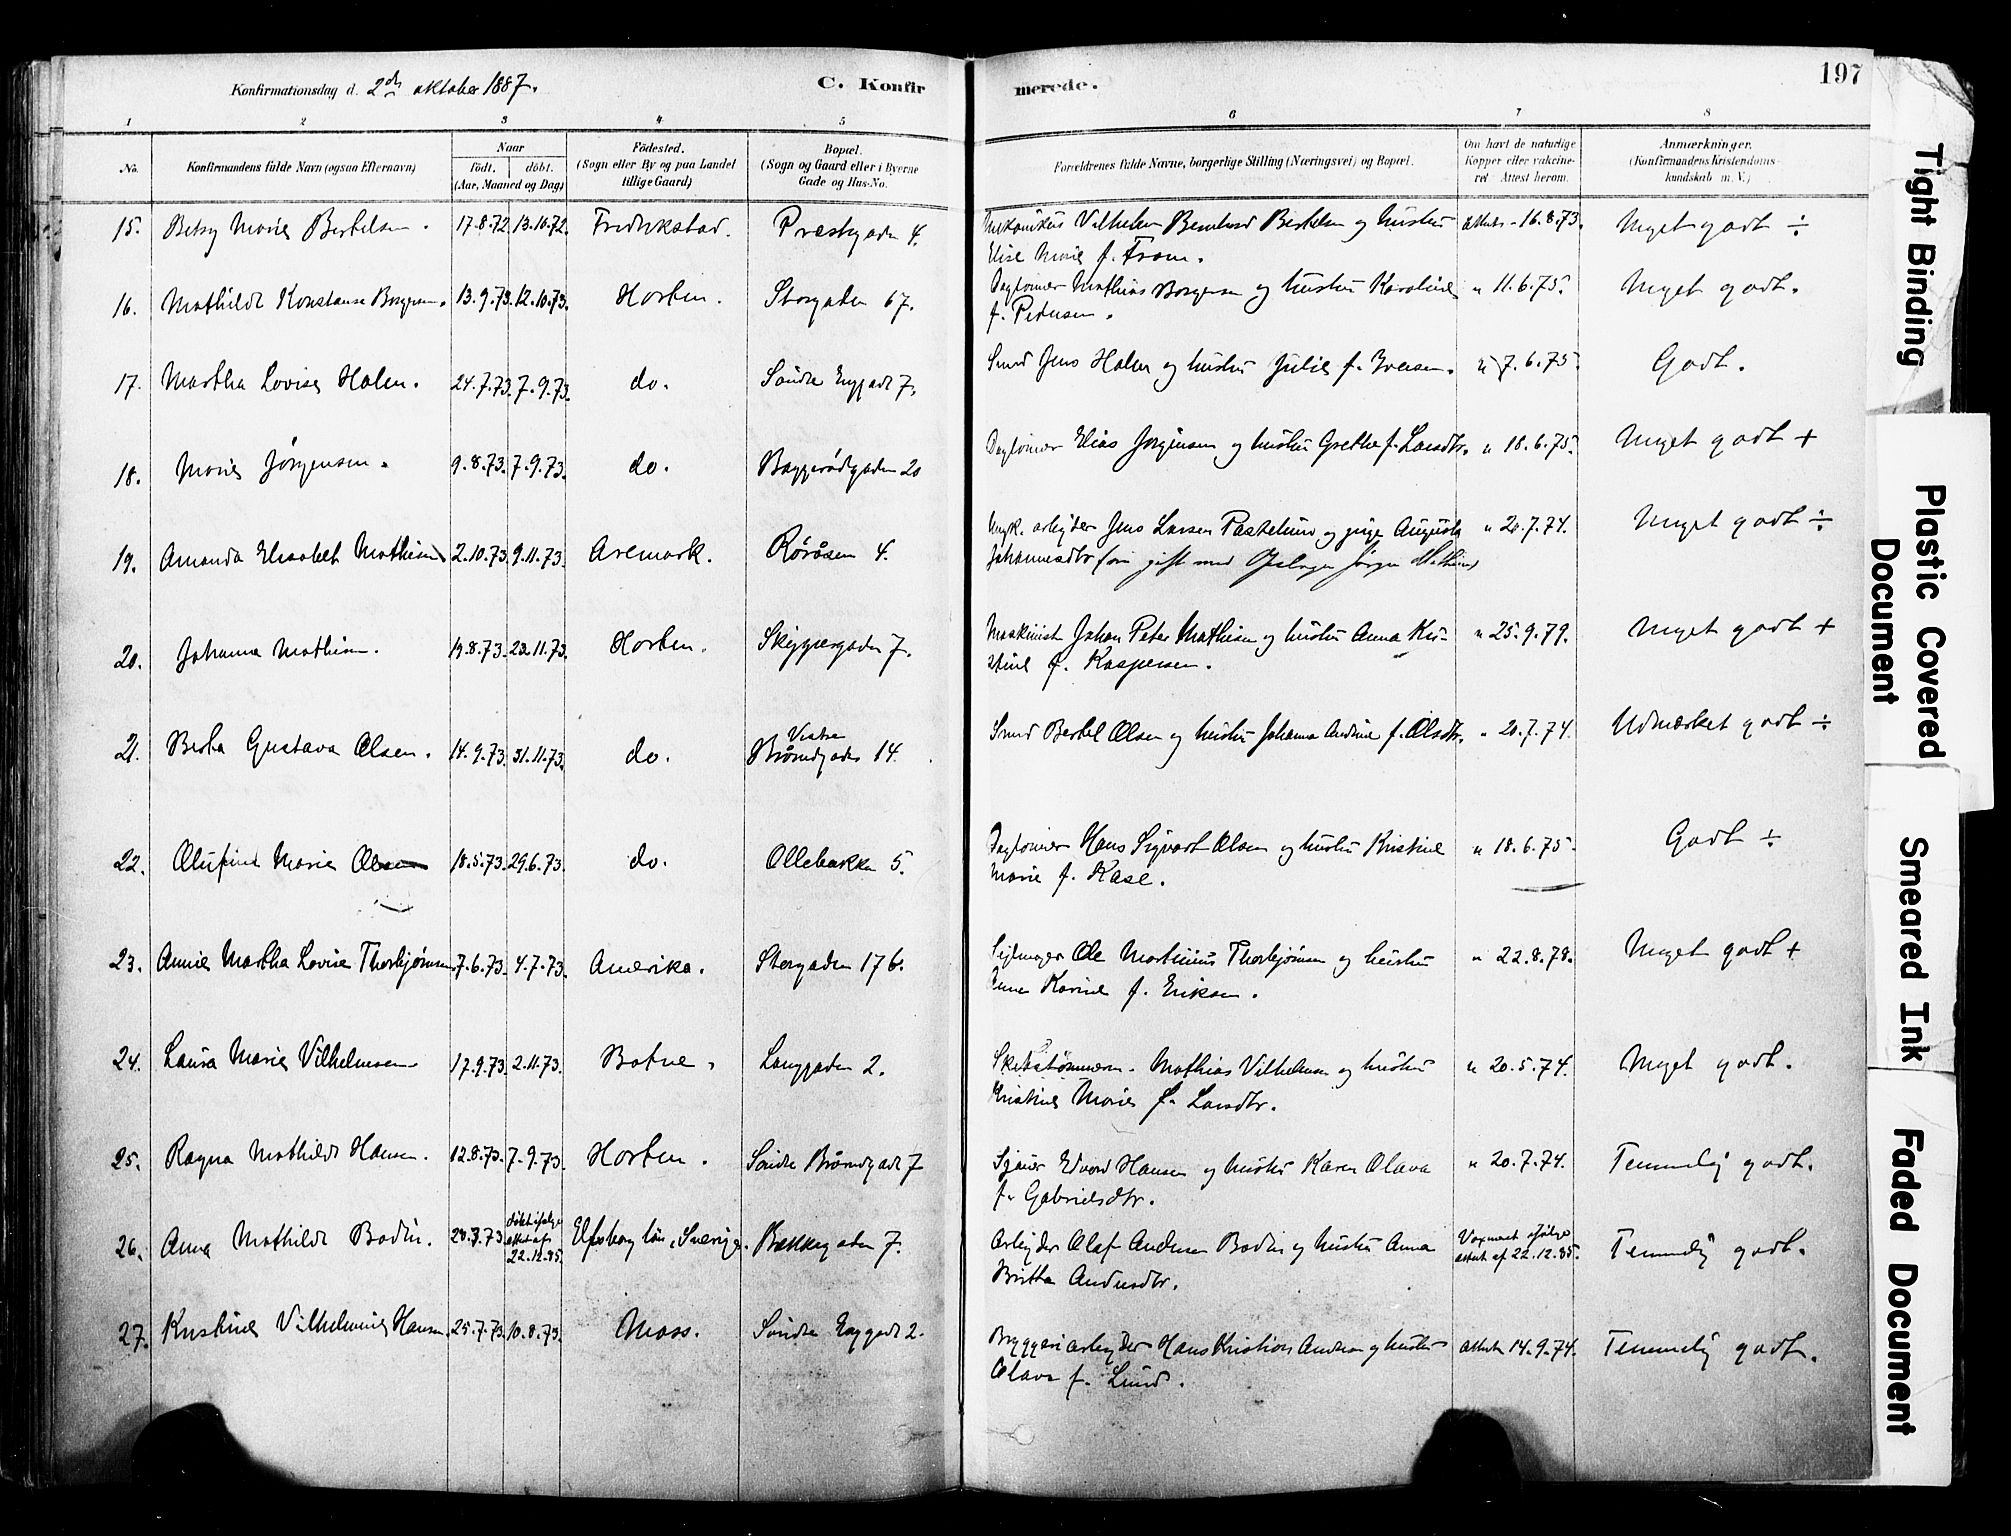 Konfirmationsdag d. 2den oktober 1887.
C. Konfir
merede.
197
1 2 3 4 5 6 7 8
No.
Konfirmandens fulde Navn (ogsaa Efternavn)
Naar
födt. döbt.
(Aar, Maaned og Dag)
Födested.
(Sogn eller By og paa Landet
tillige Gaard)
Bopæl.
(Sogn og Gaard eller i Byerne
Gade og Hus-No.
Forældrenes fulde Navne, borgerlige Stilling (Næringsvei) og Bopæl.
Om havt de naturlige
Kopper eller vakcine-
ret Attest herom.
Anmærkninger.
(Konfirmandens Kristendoms-
kundskab m. V.)
15. Betsy Marie Bertelsen. 17.8.72 13.10.72. Fredrikstad. Præstegaden 4. Vilhelm Bernhard Bertelsen og hustru attest 16.8.73. Meget godt ÷
Elise Marie f. From.
16. Mathilde Konstanse Borgersen. 13.9.73. 12.10.73. Horten. Storgaden 67. Daglönner Mathias Borgersen og hustru Karoline " 11.6.75. Meget godt.
f. Petersen.
17. Martha Lovise Halen. 24.7.73. 7.9.73. do. Söndre Enggade 7. Smed Jens Halen og hustru Julie f. Iversen. " 7.6.75. Godt.
18. Marie Jörgensen. 9.8.73. 7.9.73. do. Baggerödgaden 20 Daglönner Elias Jörgensen og hustru Grethe f. Larsdtr. " 18.6.75. Meget godt +
19. Amanda Elisabet Mathisen 2.10.73. 9.11.73. Aremark. Röråsen 4. arbejder Jens Larsen og pige Augusta " 20.7.74. Meget godt ÷
Johannesdtr gift med Jörgen Mathisen
20. Johanna Mathisen. 19.8.73. 23.11.73. Horten. Skippergaden 7. Maskinist Johan Peter Mathisen og hustru Anna Kri- " 25.9.79. Meget godt +
stine f. Kaspersen.
21. Berta Gustava Olsen. 14.9.73. 31.11.73. do. Vestre
Bröndgade 14. Smed Bertel Olsen og hustru Johanna Andrine f. Olsdtr. " 20.7.74. Udmærket godt ÷
22. Olufine Marie Olsen 18.5.73. 29.6.73. do. Ollebakken 5. Daglönner Hans Sigvart Olsen og hustru Kristine " 18.6.75. Godt ÷
Marie f. Kase.
23. Annie Martha Lovise Thorbjörnsen. 7.6.73. 4.7.73. Amerika. Storgaden 176. Ole Martinius Thorbjörnsen og hustru " 22.8.78. Meget godt +
Anne Karine f. Eriksen.
24. Laura Marie Vilhelmsen 17.9.73. 2.11.73. Botne. Langgaden 2. Skibstömmerm. Mathias Vilhelmsen og hustru " 20.5.74. Meget godt.
Kristine Marie f. Larsdtr.
25. Ragna Mathilde Hansen. 12.8.73. 7.9.73. Horten. Söndre Bröndgade 7 Sjauer Edvard Hansen og hustru Karen Olava " 20.7.74. Temmelig godt.
f. Gabrielsdtr.
26. Anna Mathilde Bodin. 28.3.73. döbt ifölge
attest af
22.12.85. Elfsborg län, Sverige. Bækkegaden 7. Arbejder Olaf Andersen Bodin og hustru Anna Vaxineret ifölge
attest af 22.12.85. Temmelig godt.
Britta Andersdtr.
27. Kristine Vilhelmine Hansen. 25.7.73. 10.8.73. Moss. Söndre Enggade 2. Bryggeriarbejder Hans Kristian Andersen og hustru attest 14.9.74. Temmelig godt.
Olava f. Lund.
Tight Binding
Plastic Covered
Document
Smeared Ink
Faded Document